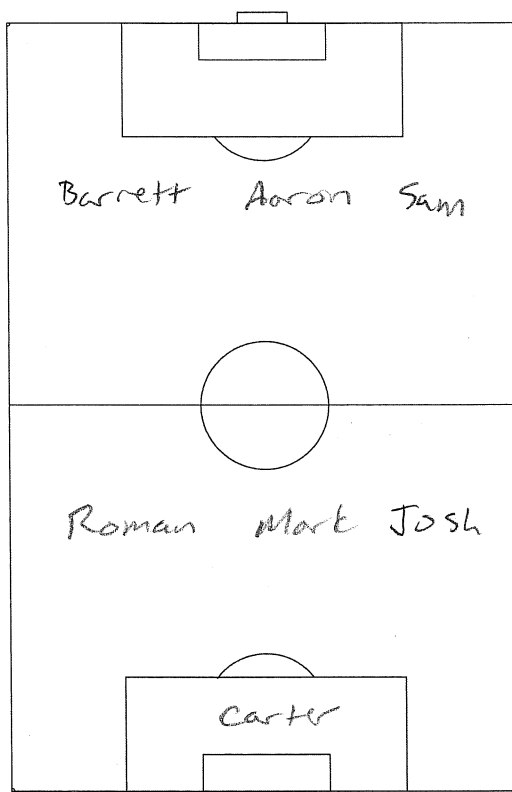 Barrett Aaron Sam
Roman Mark Josh
Carter